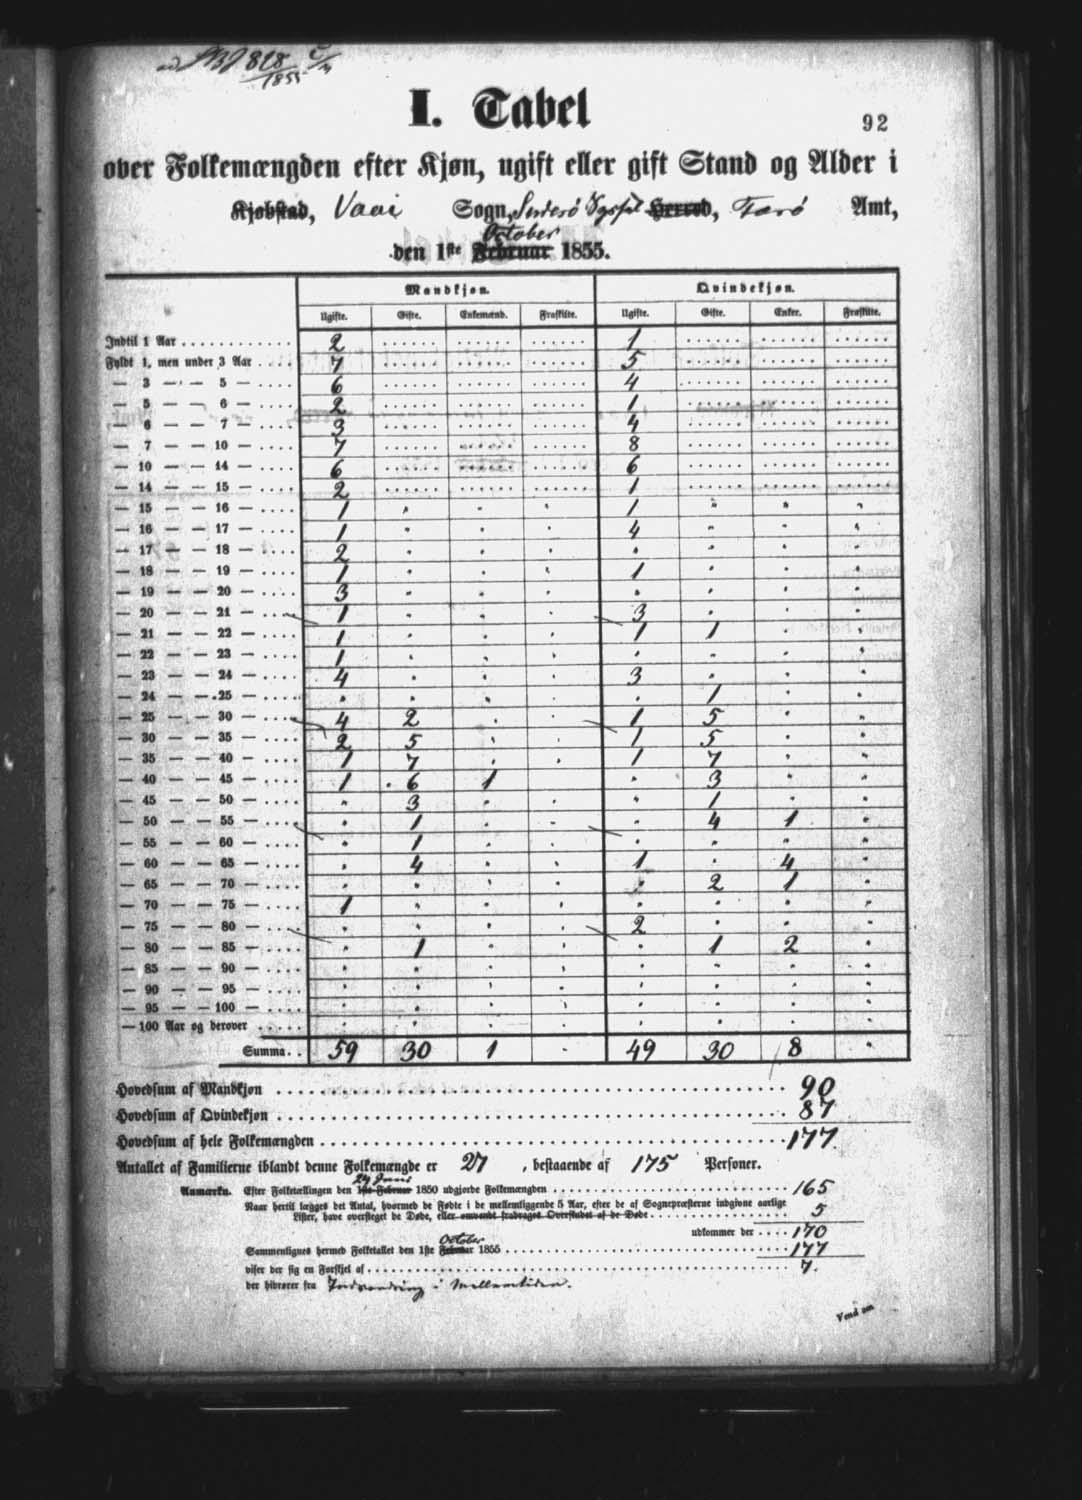 828
1855
I. Tabel
92
over Folkemængden efter Kjøn, ugift eller gift Stand og Alder i
Kjøbstad, Vaai Sogn, Suderø Syssel Herred, Færø Amt,
October
den 1ste Februar 1855.
Mandkjøn. Qvindekjøn.
Ugifte. Gifte. Enkemænd. Fraskilte. Ugifte. Gifte. Enker. Fraskilte.
Indtil 1 Aar . . . . . . . . . . . . . 2 1
Fyldt 1, men under 3 Aar . . . . 7 5
— 3 — — 5 — . . . . 6 4
— 5 — — 6 — . . . . 2 1
— 6 — — 7 — . . . . 3 4
— 7 — — 10 — . . . . 7 8
— 10 — — 14 — . . . . 6 6
— 14 — — 15 — . . . . 2 1
— 15 — — 16 — . . . . 1 " " " 1 " " "
— 16 — — 17 — . . . . 1 " " " 4 " " "
— 17 — — 18 — . . . . 2 " " " " " " "
— 18 — — 19 — . . . . 1 " " " 1 " " "
— 19 — — 20 — . . . . 3 " " " " " " "
— 20 — — 21 — . . . . 1 " " " 3 " " "
— 21 — — 22 — . . . . 1 " " " 1 1 " "
— 22 — — 23 — . . . . 1 " " " " " " "
— 23 — — 24 — . . . . 4 " " " 3 " " "
— 24 — — 25 — . . . . " " " " " 1 " "
— 25 — — 30 — . . . . 4 2 " " 1 5 " "
— 30 — — 35 — . . . . 2 5 " " 1 5 " "
— 35 — — 40 — . . . . 1 7 " " 1 7 " "
— 40 — — 45 — . . . . 1 6 1 " 3 " "
— 45 — — 50 — . . . . " 3 " " " 1 " "
— 50 — — 55 — . . . . " 1 " " " 4 1 "
— 55 — — 60 — . . . . " 1 " " " " " "
— 60 — — 65 — . . . . " 4 " " 1 " 4 "
— 65 — — 70 — . . . . " " " " " 2 1 "
— 70 — — 75 — . . . . 1 " " " " " " "
— 75 — — 80 — . . . . " " " " 2 " " "
— 80 — — 85 — . . . . " 1 " " " 1 2 "
— 85 — — 90 — . . . . " " " " " " " "
— 90 — — 95 — . . . . " " " " " " " "
— 95 — — 100 — . . . . " " " " " " " "
— 100 Aar og derover . . . . . " " " " " " " "
Summa . . 59 30 1 " 49 30 8 "
Hovedsum af Mandkjøn . . . . 90
Hovedsum af Qvindekjøn . . . . 87
Hovedsum af hele Folkemængden . . . . 177.
Antallet af Familierne iblandt denne Folkemængde er 27, bestaaende af 175 Personer.
24 Juni
Anmærkn. Efter Folketællingen den 1ste Februar 1850 udgjorde Folkemængden . . . . 165
Naar hertil lægges det Antal, hvormed de Fødte i de mellemliggende 5 Aar, efter de af Sognepræsterne indgivne aarlige
Lister, have oversteget de Døde, eller omvendt fradrages Overskudet af de Døde . . . . 5
udkommer der . . . . 170
October
Sammenlignes hermed Folketallet den 1ste Februar 1855 . . . . 177
viser der sig en Forskjel af . . . . 7.
der hidrører fra Indvandring i Mellemtiden.
Vend om